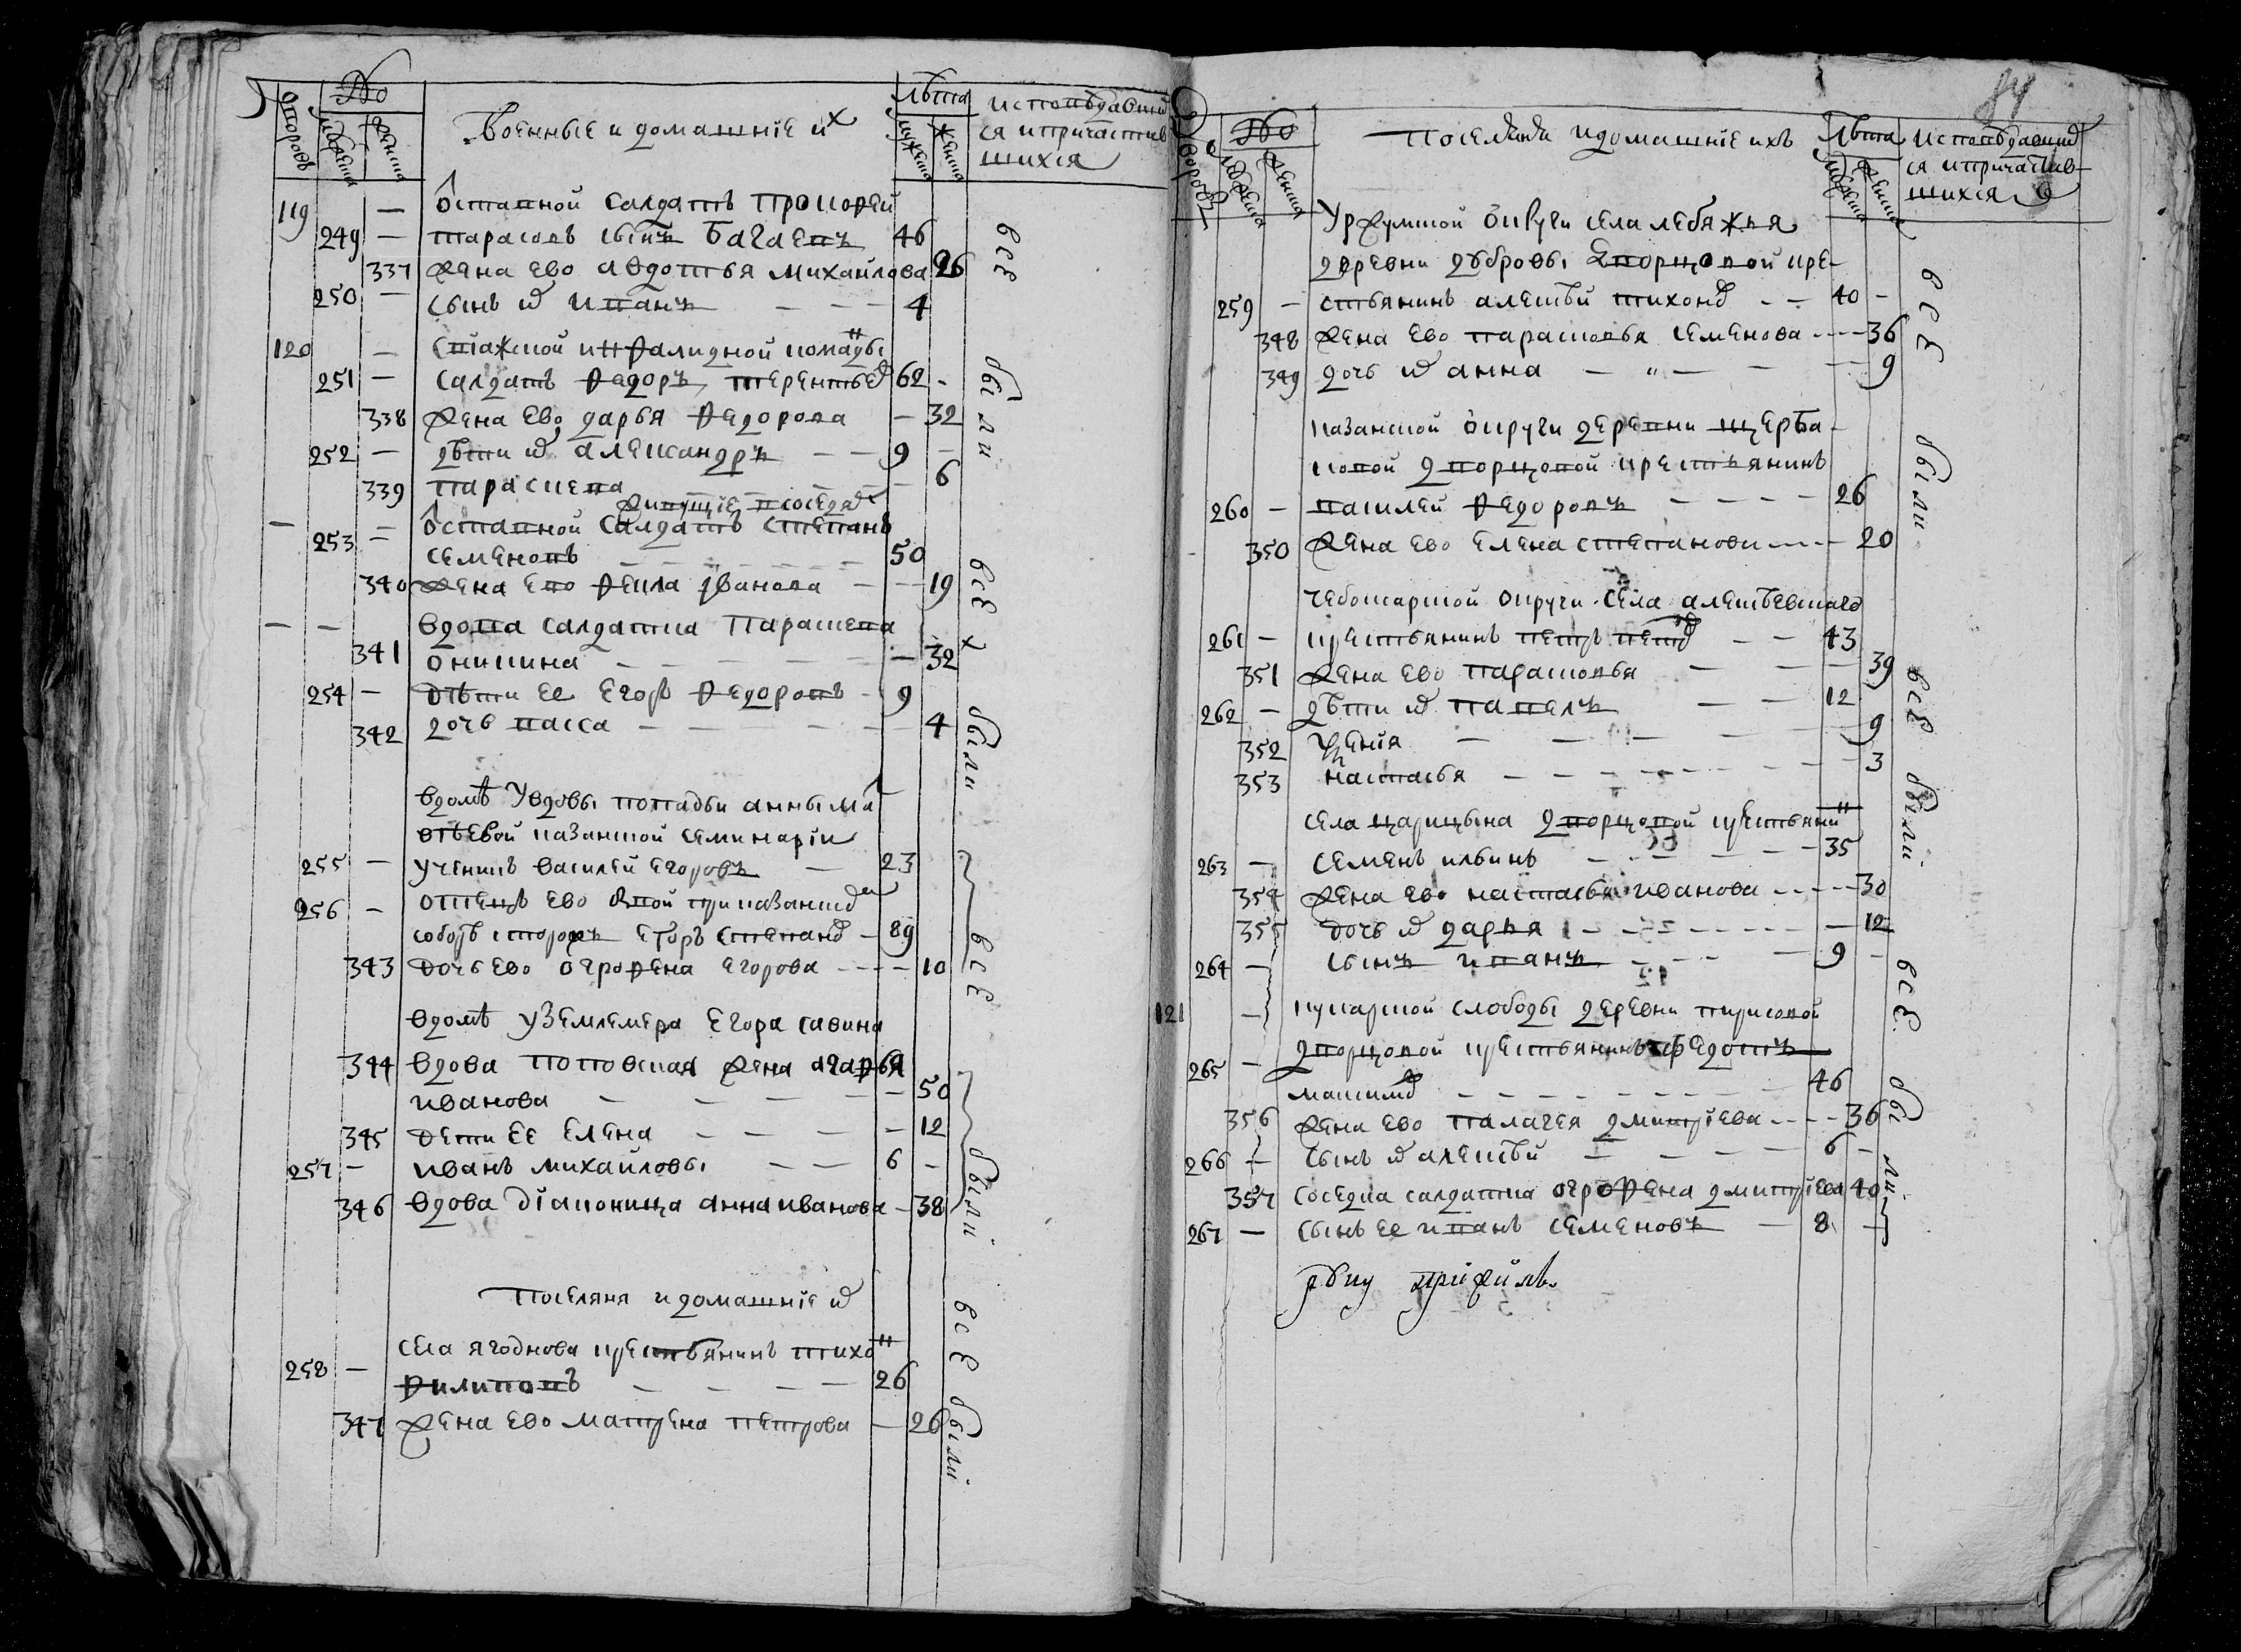 дворовъ
№
мужеска
женска
Военные и домашнїе их
Лѣта
мужеска
женска
исповѣдавши
ся и причастив
шихся
119 — Ѡставной салдатъ Прокофей
249 — тарасовъ сынъ Багаевъ 46
337 жена ево авдотья михайлова 26
250 — сынъ их иванъ — — — 4
все
120 — Стажской инвалидной команды
251 — салдатъ Федоръ терентьев 62 -
338 жена ево дарья Федорова — 32
252 — дѣти их александръ — — 9 —
339 параскева — — — 6
были
живущїе в соседях
— — Ѡставной Салдатъ степанъ
253 — семеновъ — — — — — 50
340 жена ево Фекла Иванова — — 19
— — вдова салдатка Парасkева
341 оникина — — — — — — 32
254 — дѣти ее Егоръ Федоровъ - 9
342 дочь васса — — — — — 4
все х были
вдомѣ Увдовы попадьи анны ма
ѳѣевой казанской семинарїи
255 — ученикъ василей егоровъ — 23
256 — отецъ ево
соборѣ сторожъ Егоръ степанов — 89
343 дочь ево огрофена егорова — — — — 10
вдомѣ уЗемлемера Егора савина
344 вдова поповская жена агафья
иванова — — — — — 50
345 дети ее елена — — — — 12
257 — иванъ михайловы — — 6 -
346 вдова дїаконица анна иванова — 38
все были
поселяня и домашнїе их
258 — села ягоднова крестьянинъ тихон
Филиповъ — — — — 26
347 жена ево матрена петрова — 26
все были
84
дворовъ
№
мужеска
женска
поселяня идомашнїе ихъ
Лѣта
мужеска
женска
исповѣдавши
ся ипричастив-
шихся
Уржумской округи села лебяжья
деревни дубровы Дворцовой кре-
259 — стьянинъ алексѣй тихонов — — 40 -
348 жена ево парасковья семенова — — — — 36
349 дочь их анна — „ — — — 9
все
казанской округи деревни щерба-
ковой дворцовой крестьянинъ
260 — василей Федоровъ — — — — 26
350 жена ево елена степанова — — — — 20
были
чебоксарской округи села алексѣевскаго
261 — крестьянинъ петръ петров — — 43
351 жена ево парасковья — — — 39
262 — дѣти их павелъ — — 12
352 — — — — — 9
353 настасья — — — — — — — 3
все
села царицына дворцовой крестьянин
263 — семенъ ильинъ — — — — — 35
354 жена ево настасья иванова — — — — 30
355 дочь их дарья — — — — — — — — 12
264 — сынъ иванъ — — — — 9 -
были
121 — кукарской слободы деревни
265 — дворцовой крестьянинъ федотъ
максимов — — — — — — — 46
356 жена ево палагея дмитрїева — — — — 36
266 — сынъ их алексѣй — — — — 6 -
357 соседка салдатка огрофена дмитрїева 40
267 — сынъ ее иванъ семеновъ — 8 —
все были